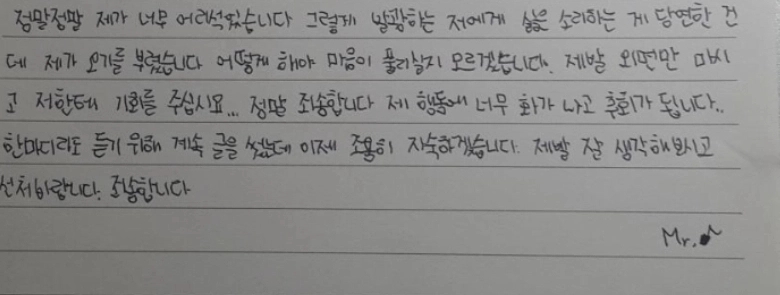 정말정말 제가 너무 어리석었습니다 그렇게 발광하는 저에게 싫은 소리하는 게 당연한 건
데 제가 오기를 부렸습니다 어떻게 해야 마음이 풀리실지 모르겠습니다. 제발 외면만 마시
고 저한테 기회를 주십시요... 정말 죄송합니다 제 행동에 너무 화가 나고 후회가 됩니다..
한마디라도 듣기 위해 계속 글을 썼는데 이제 조용히 자숙하겠습니다. 제발 잘 생각해보시고
선처바랍니다. 죄송합니다
Mr.♪